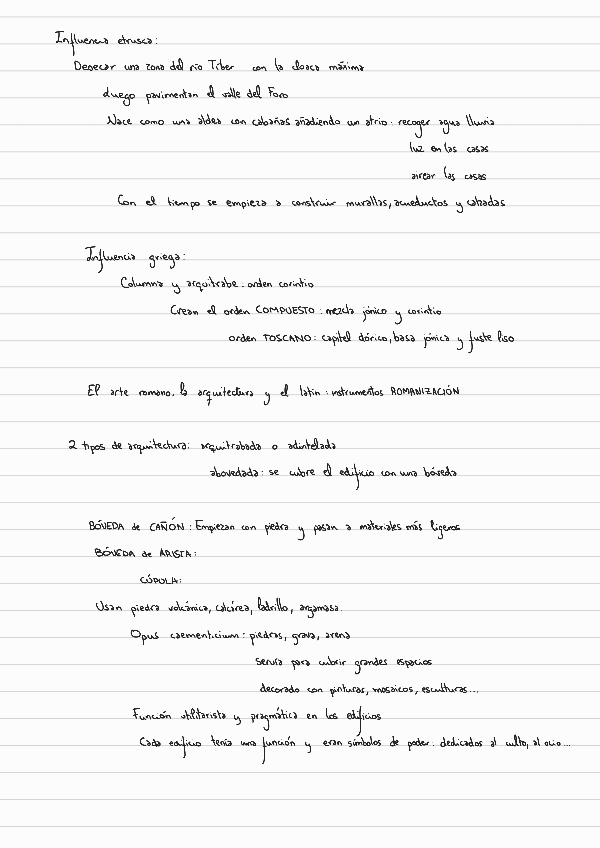 Influencia etrusca:
Desecar una zona del río Tíber con la cloaca máxima
Luego pavimentan el valle del Foro
Nace como una aldea con cabañas añadiendo un atrio: recoger agua lluvia
luz en las casas
airear las casas
Con el tiempo se empieza a construir murallas, acueductos y calzadas
Influencia griega:
Columna y arquitrabe: orden corintio
Crean el orden COMPUESTO: mezcla jónico y corintio
orden TOSCANO: capitel dórico, basa jónica y fuste liso
El arte romano, la arquitectura y el latín: instrumentos ROMANIZACIÓN
2 tipos de arquitectura: arquitrabada o adintelada
abovedada: se cubre el edificio con una bóveda
BÓVEDA de CAÑÓN: Empiezan con piedra y pasan a materiales más ligeros
BÓVEDA de ARISTA:
CÚPULA:
Usan piedra volcánica, calcárea, ladrillo, argamasa.
Opus caementicium: piedras, grava, arena
Servía para cubrir grandes espacios
decorado con pinturas, mosaicos, esculturas...
Función utilitarista y pragmática en los edificios
Cada edificio tenía una función y eran símbolos de poder: dedicados al culto, al ocio...